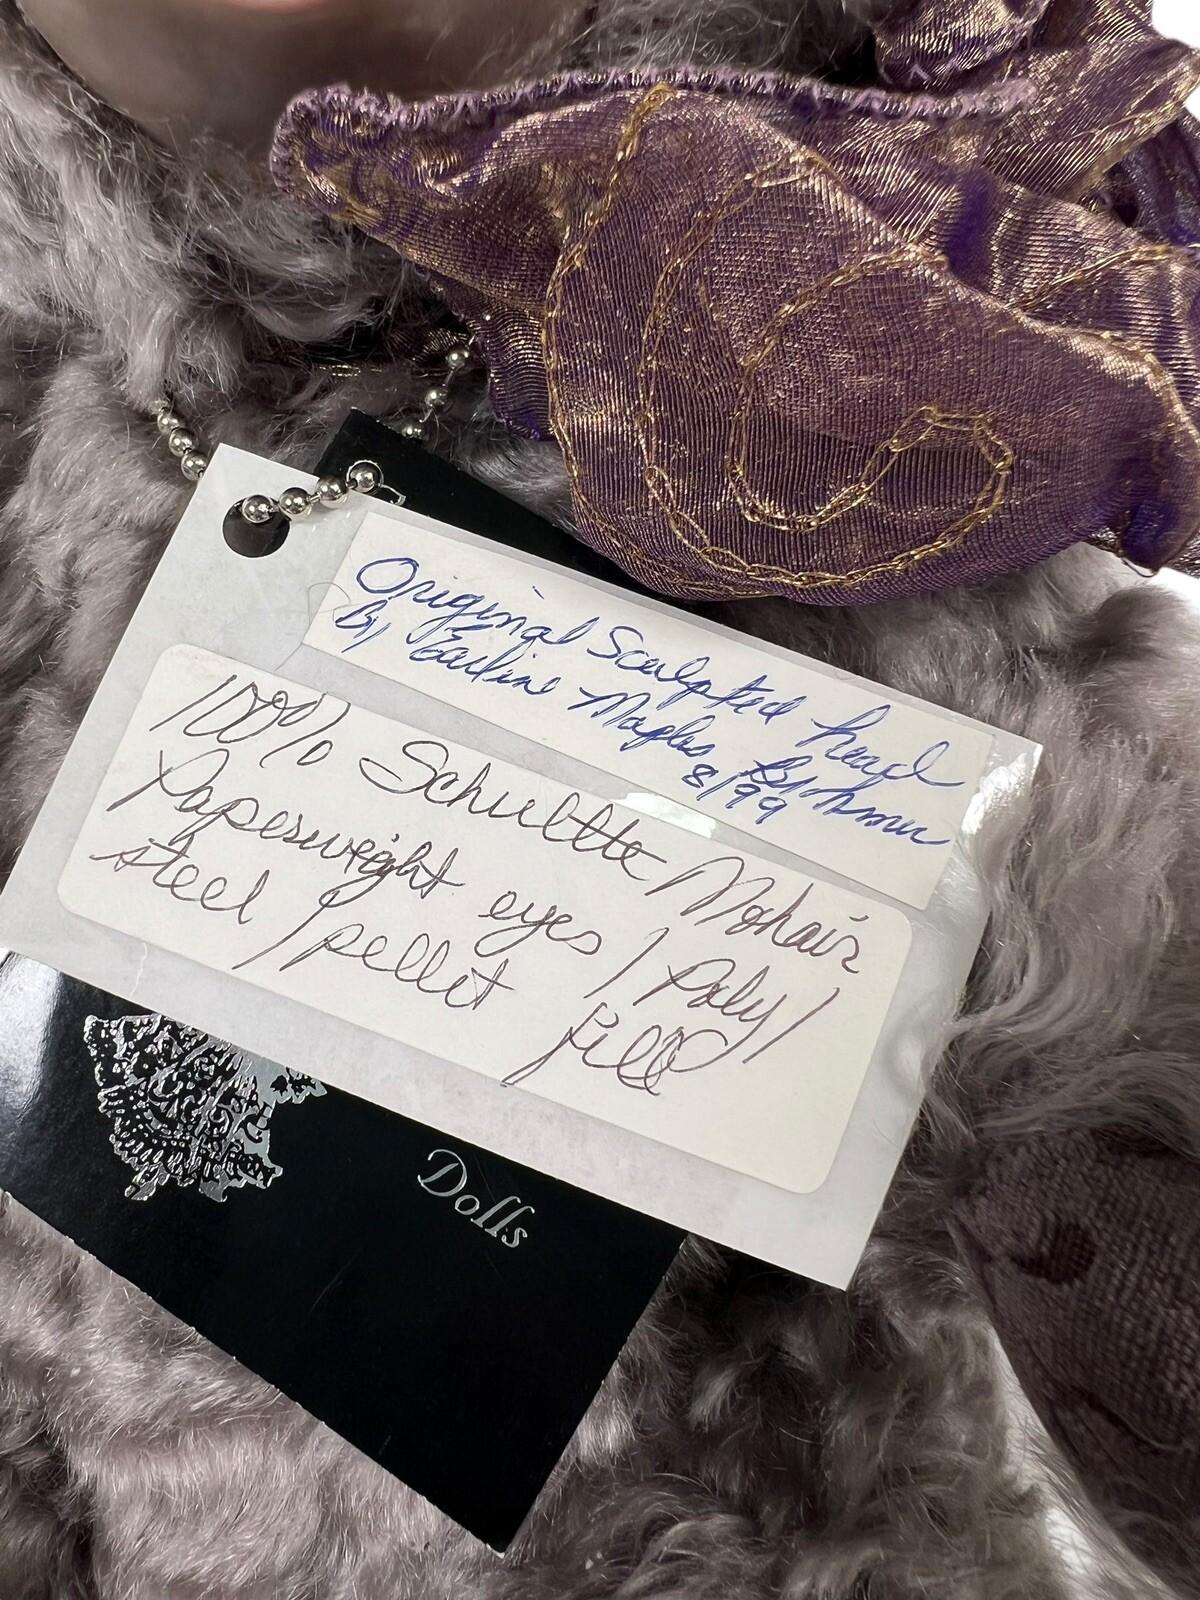 Original Sculpted head
By Earline Maples
8/99
100% Schultte Mohair
Paperweight eyes / Poly /
steel / pellet fill
Dolls